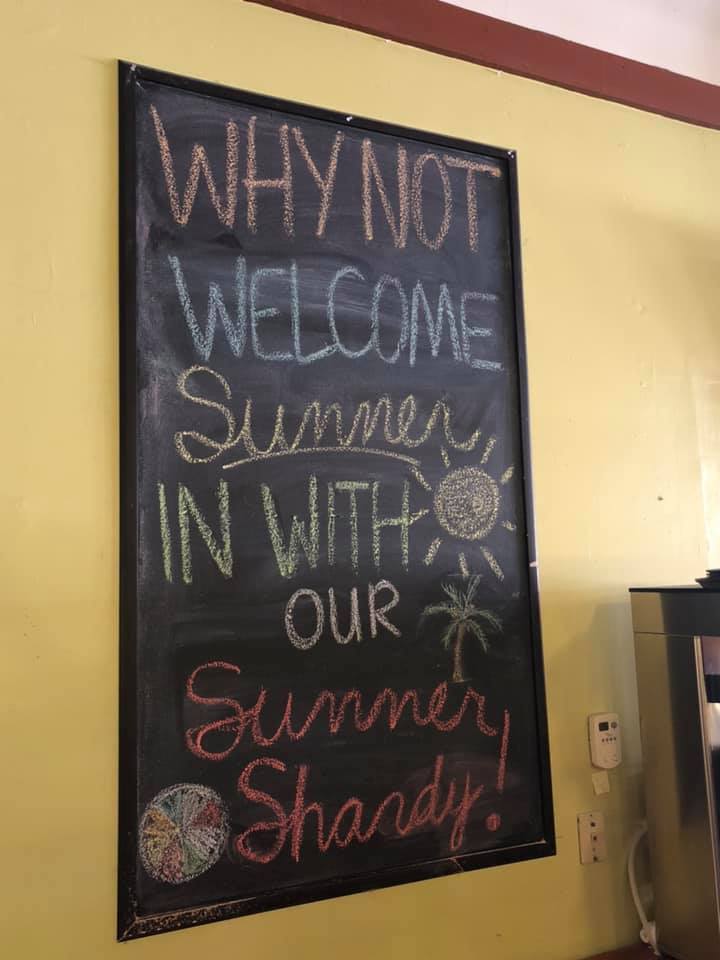 WHY NOT
WELCOME
Summer
IN WITH
OUR
Summer
Shandy!